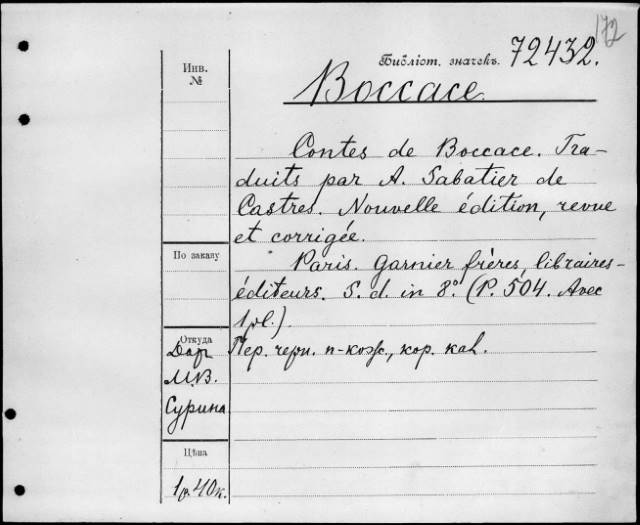 172
Библіот. значекъ. 72432.
Инв.
№
Boccace.
Contes de Boccace. Tra-
duits par A. Sabatier de
Castres. Nouvelle édition, revue
et corrigée.
По заказу
Paris. Garnier frères, libraires-
éditeurs. S. d. in 8º. (P. 504. Avec
1 pl.).
Откуда
Дар
М.В.
Сурина
Пер. черн. п-кож., кор. каl.
Цѣна
1 р. 40 к.